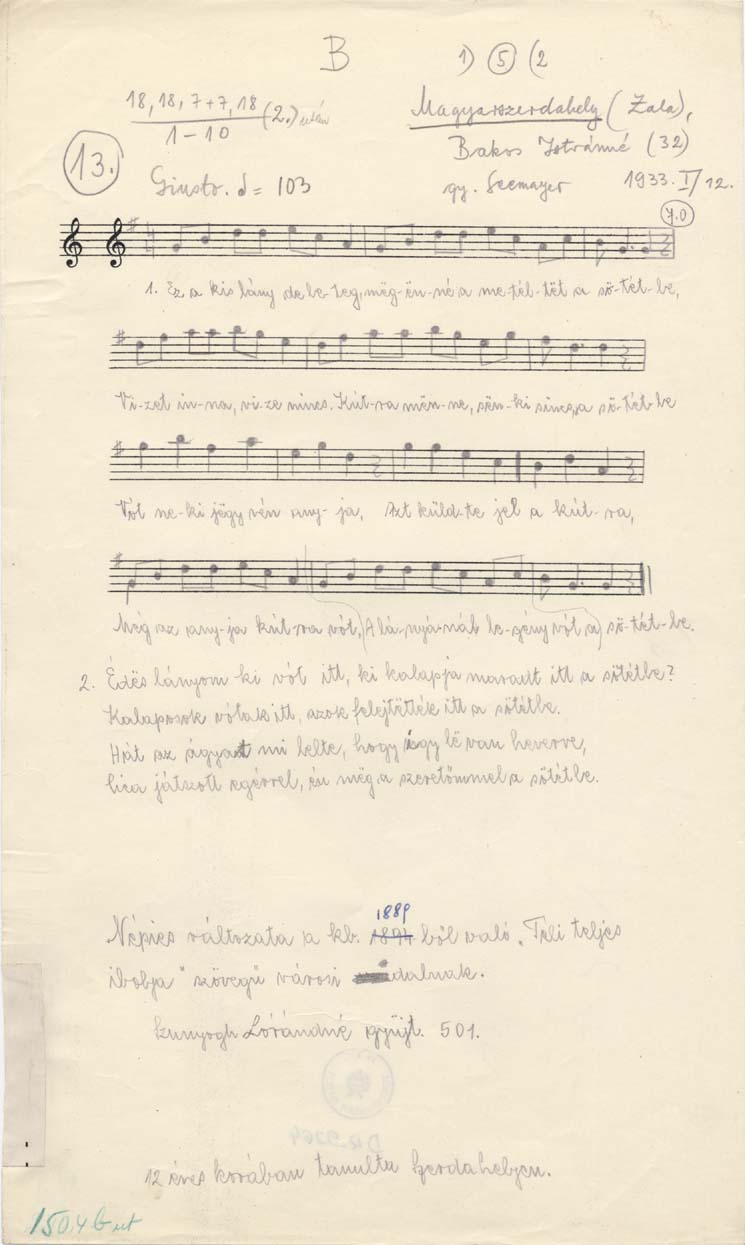 B
1) 5 (2
18, 18, 7+7, 18
1-10
(2.) után
Magyarszerdahely (Zala),
Bakos Istvánné (32)
13.
Giusto. = 103
gy. Seemayer
1933. I/12.
7.0
1. Ez a kis lány de be-teg, mëg-ën-né a me-tél-tët a sö-tét-be,
Vi-zet in-na, vi-ze nincs. Kút-ra mën-ne, sën-ki sincs, a sö-tét-be
Vót ne-ki jëgy vén any-ja, Azt küld-te jel a kút-ra,
Még az any-ja kút-ra vót, (A lá-nyá-nál le-gény vót a) sö-tét-be.
2. Édës lányom ki vót itt, ki kalapja maradt itt a sötétbe?
Kalaposok vótak itt, azok felejtëtték itt a sötétbe.
Hát az ágyat mi lelte, hogy így lë van heverve,
Cica játszott egérrel, én mëg a szeretőmmel a sötétbe.
Népies változata a kb. 1889 ből való „Teli teljes
ibolja" szövegű városi dalnak.
Kunyogh Lórándné gyűjt. 501.
12 éves korában tanulta Szerdahelyen.